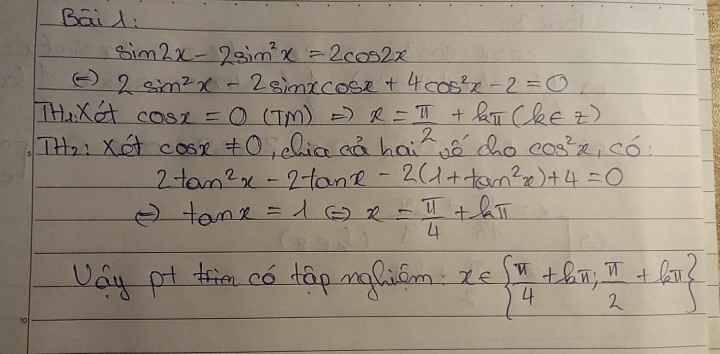 Bài 1:
sin2x - 2sin²x = 2cos2x
⇔ 2 sin²x - 2sinxcosx + 4cos²x - 2 = 0
TH₁: Xét cosx = 0 (TM) ⇒ x = π/2 + kπ (k ∈ z)
TH₂: Xét cosx ≠ 0, chia cả hai vế cho cos²x, có:
2tan²x - 2tanx - 2(1 + tan²x) + 4 = 0
⇔ tanx = 1 ⇔ x = π/4 + kπ
Vậy pt có tập nghiệm: x ∈ {π/4 + kπ; π/2 + kπ}